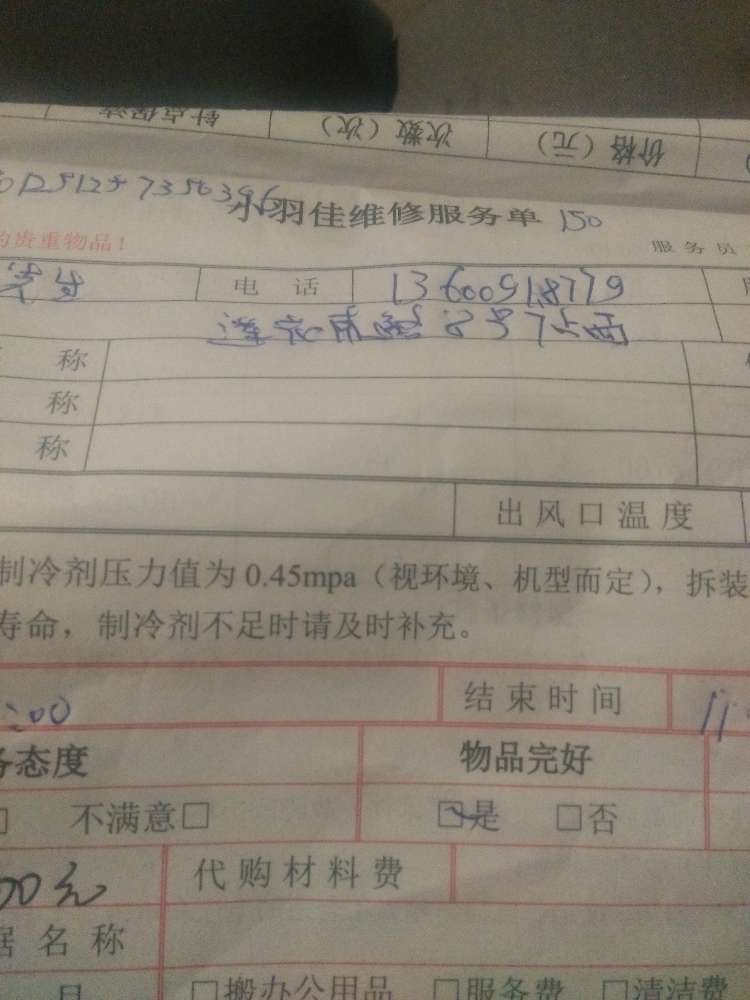 价格（元） 次数（次）
小羽佳维修服务单 150
的贵重物品！ 服务员
电话 13600918779
8号
称
称
称
出风口温度
制冷剂压力值为0.45mpa（视环境、机型而定），拆装
寿命，制冷剂不足时请及时补充。
:00 结束时间 11
务态度 物品完好
不满意□ □是 □否
00元 代购材料费
据名称
□搬办公用品 □服务费 □清洁费